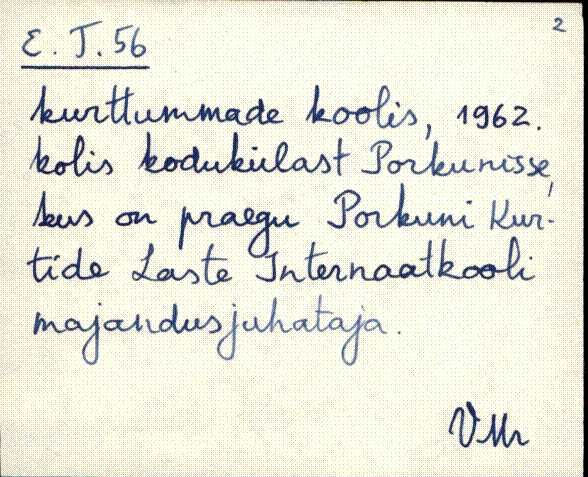 2
E. T. 56
kurttummade koolis, 1962.
kolis kodukülast Porkunisse,
kus on praegu Porkuni Kur-
tide Laste Internaatkooli
majandusjuhataja.
VMr